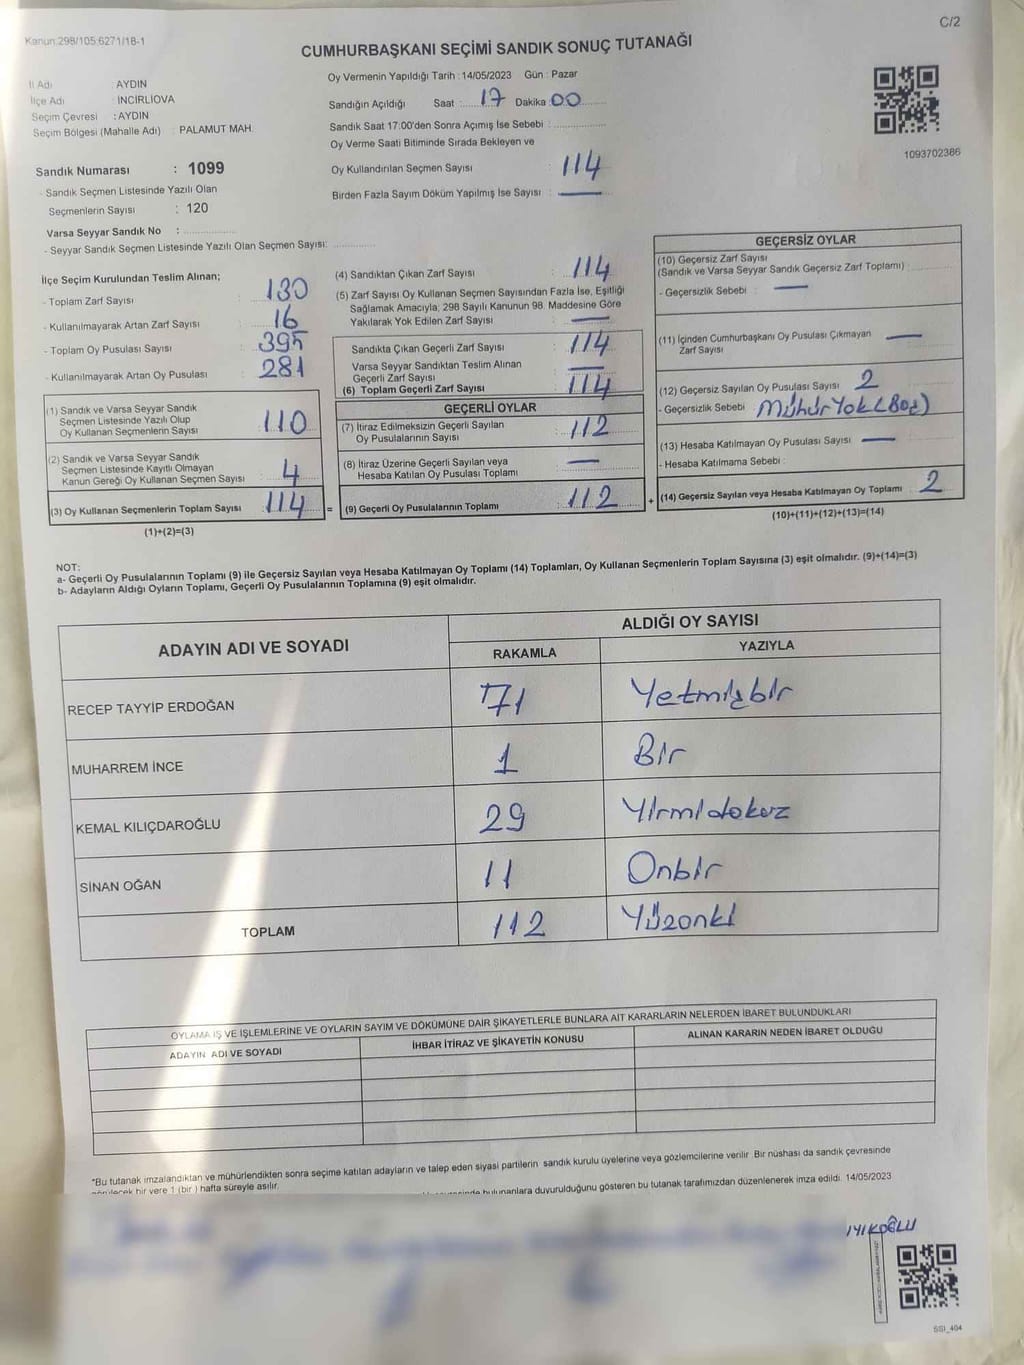 C/2
Kanun:298/105,6271/18-1
CUMHURBAŞKANI SEÇİMİ SANDIK SONUÇ TUTANAĞI
İl Adı : AYDIN
İlçe Adı : İNCİRLİOVA
Seçim Çevresi : AYDIN
Seçim Bölgesi (Mahalle Adı) : PALAMUT MAH.
Oy Vermenin Yapıldığı Tarih : 14/05/2023 Gün : Pazar
Sandığın Açıldığı Saat : 17 Dakika : 00
Sandık Saat 17:00'den Sonra Açımış İse Sebebi :
Oy Verme Saati Bitiminde Sırada Bekleyen ve
Oy Kullandırılan Seçmen Sayısı : 114
Birden Fazla Sayım Döküm Yapılmış İse Sayısı : —
1093702386
Sandık Numarası : 1099
- Sandık Seçmen Listesinde Yazılı Olan
Seçmenlerin Sayısı : 120
Varsa Seyyar Sandık No :
- Seyyar Sandık Seçmen Listesinde Yazılı Olan Seçmen Sayısı:
İlçe Seçim Kurulundan Teslim Alınan;
- Toplam Zarf Sayısı : 130
- Kullanılmayarak Artan Zarf Sayısı : 16
- Toplam Oy Pusulası Sayısı : 395
- Kullanılmayarak Artan Oy Pusulası : 281
(1) Sandık ve Varsa Seyyar Sandık
Seçmen Listesinde Yazılı Olup
Oy Kullanan Seçmenlerin Sayısı : 110
(2) Sandık ve Varsa Seyyar Sandık
Seçmen Listesinde Kayıtlı Olmayan
Kanun Gereği Oy Kullanan Seçmen Sayısı : 4
(3) Oy Kullanan Seçmenlerin Toplam Sayısı : 114 =
(1)+(2)=(3)
(4) Sandıktan Çıkan Zarf Sayısı : 114
(5) Zarf Sayısı Oy Kullanan Seçmen Sayısından Fazla İse, Eşitliği
Sağlamak Amacıyla; 298 Sayılı Kanunun 98. Maddesine Göre
Yakılarak Yok Edilen Zarf Sayısı : —
Sandıkta Çıkan Geçerli Zarf Sayısı : 114
Varsa Seyyar Sandıktan Teslim Alınan
Geçerli Zarf Sayısı : —
(6) Toplam Geçerli Zarf Sayısı : 114
GEÇERLİ OYLAR
(7) İtiraz Edilmeksizin Geçerli Sayılan
Oy Pusulalarının Sayısı : 112
(8) İtiraz Üzerine Geçerli Sayılan veya
Hesaba Katılan Oy Pusulası Toplamı : —
(9) Geçerli Oy Pusulalarının Toplamı : 112 +
GEÇERSİZ OYLAR
(10) Geçersiz Zarf Sayısı
(Sandık ve Varsa Seyyar Sandık Geçersiz Zarf Toplamı) :
- Geçersizlik Sebebi : —
(11) İçinden Cumhurbaşkanı Oy Pusulası Çıkmayan
Zarf Sayısı : —
(12) Geçersiz Sayılan Oy Pusulası Sayısı : 2
- Geçersizlik Sebebi : Mühür Yok (Boş)
(13) Hesaba Katılmayan Oy Pusulası Sayısı : —
- Hesaba Katılmama Sebebi :
(14) Geçersiz Sayılan veya Hesaba Katılmayan Oy Toplamı : 2
(10)+(11)+(12)+(13)=(14)
NOT:
a- Geçerli Oy Pusulalarının Toplamı (9) ile Geçersiz Sayılan veya Hesaba Katılmayan Oy Toplamı (14) Toplamları, Oy Kullanan Seçmenlerin Toplam Sayısına (3) eşit olmalıdır. (9)+(14)=(3)
b- Adayların Aldığı Oyların Toplamı, Geçerli Oy Pusulalarının Toplamına (9) eşit olmalıdır.
ADAYIN ADI VE SOYADI
ALDIĞI OY SAYISI
RAKAMLA YAZIYLA
RECEP TAYYİP ERDOĞAN 71 Yetmişbir
MUHARREM İNCE 1 Bir
KEMAL KILIÇDAROĞLU 29 Yirmidokuz
SİNAN OĞAN 11 Onbir
TOPLAM 112 Yüzonki
OYLAMA İŞ VE İŞLEMLERİNE VE OYLARIN SAYIM VE DÖKÜMÜNE DAİR ŞİKAYETLERLE BUNLARA AİT KARARLARIN NELERDEN İBARET BULUNDUKLARI
ADAYIN ADI VE SOYADI İHBAR İTİRAZ VE ŞİKAYETİN KONUSU ALINAN KARARIN NEDEN İBARET OLDUĞU
*Bu tutanak imzalandıktan ve mühürlendikten sonra seçime katılan adayların ve talep eden siyasi partilerin sandık kurulu üyelerine veya gözlemcilerine verilir. Bir nüshası da sandık çevresinde
bir yere 1 (bir) hafta süreyle asılır. bulunanlara duyurulduğunu gösteren bu tutanak tarafımızdan düzenlenerek imza edildi. 14/05/2023
SSI_404